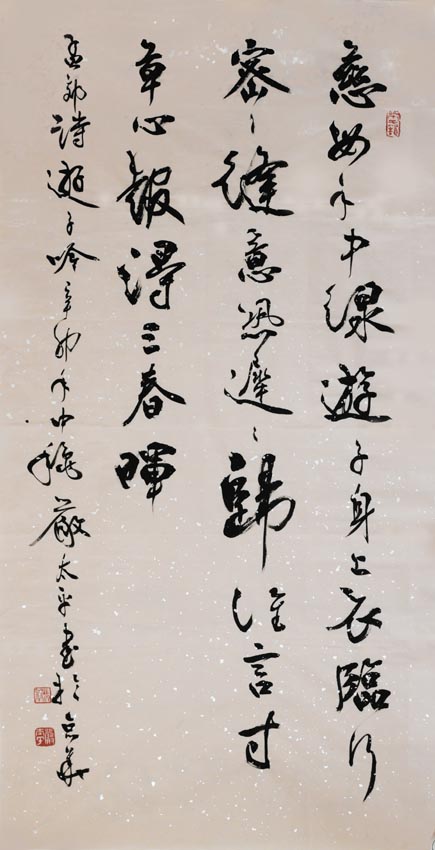 慈母手中線遊子身上衣臨行
密々縫意恐遲々歸誰言寸
草心報得三春暉
孟郊詩遊子吟辛卯年中秋嚴太平書於京華